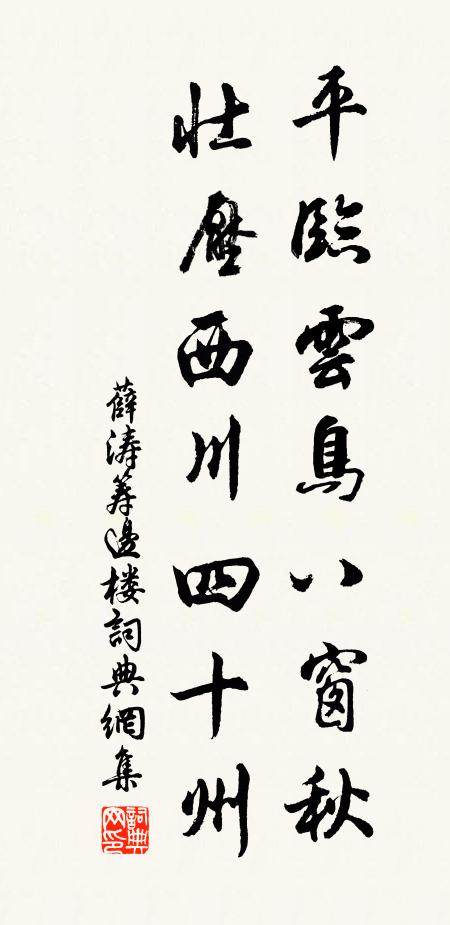 平臨雲鳥八窗秋
壯壓西川四十州
薛涛筹邊楼詞典網集
詞典网印